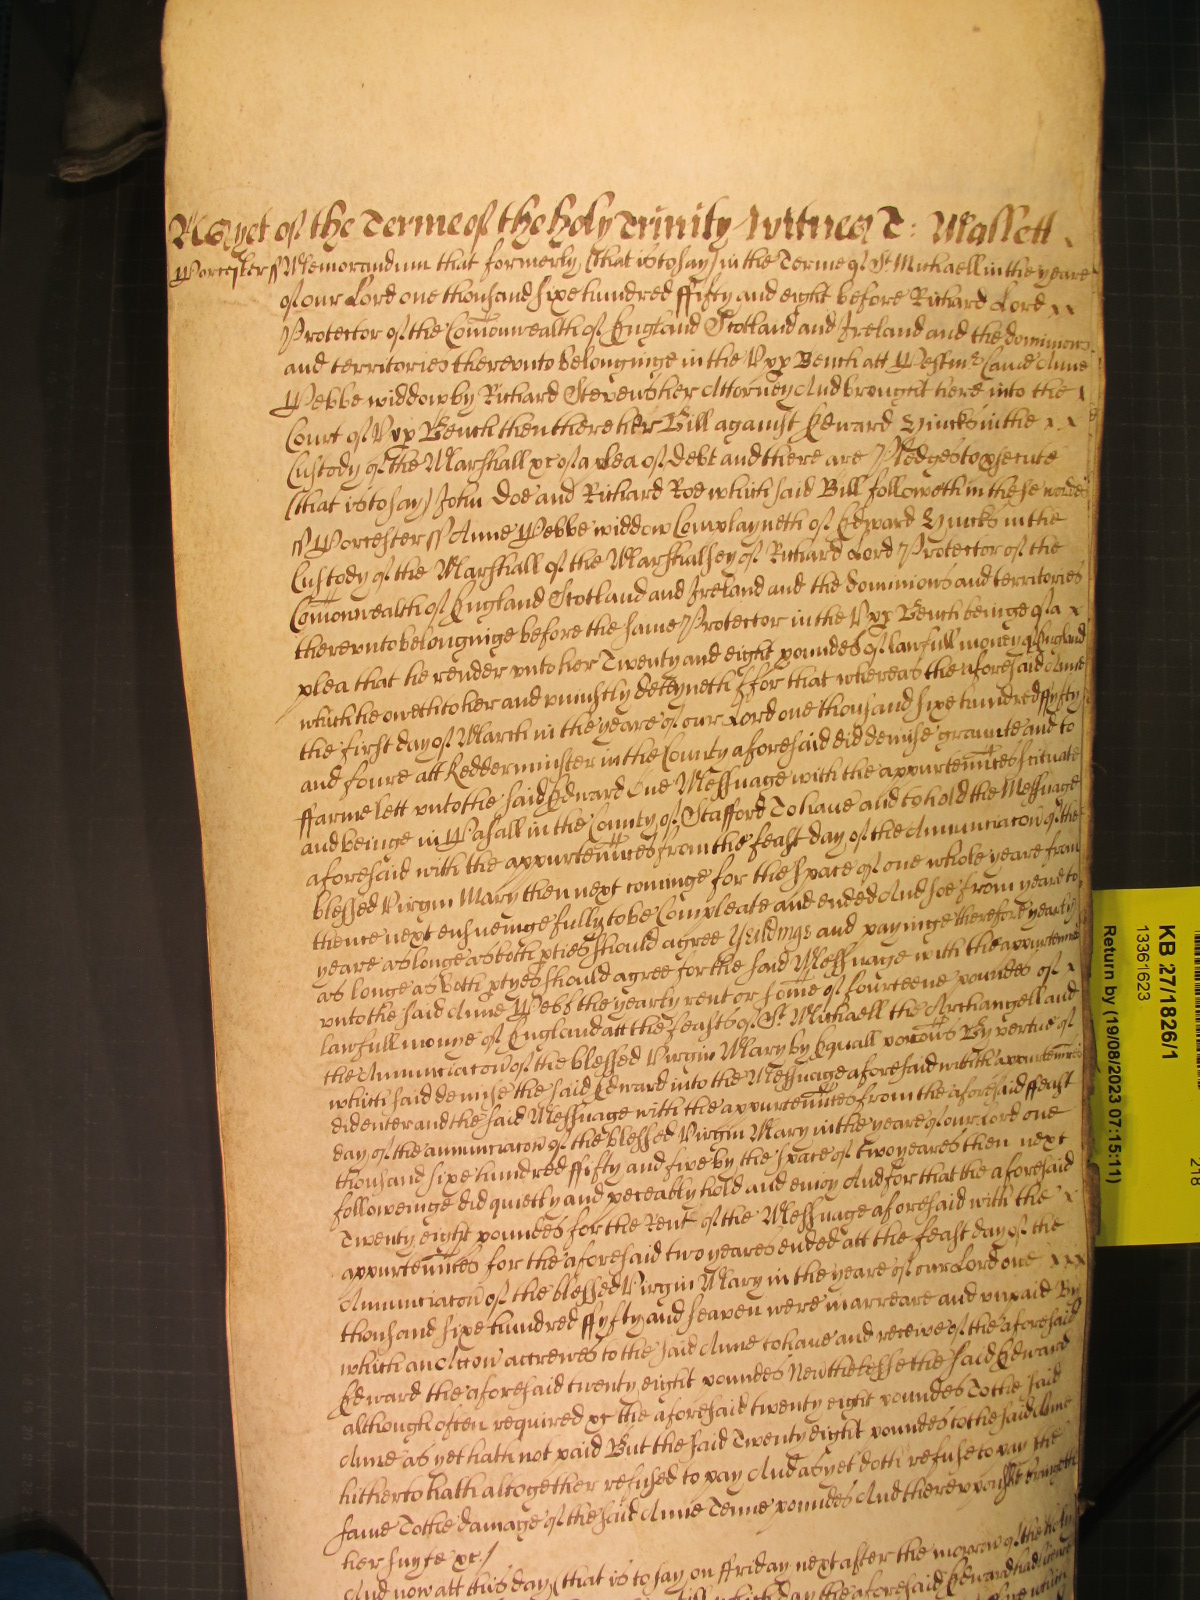 As yet of the Terme of the holy Trinity Witnes T: Mallett
Worcester ss Memorandum that formerly (that is to say) in the Terme of St Michaell in the yeare
of our Lord one thousand sixe hundred ffifty and eight before Richard Lord x x
Protector of the Com̄onwealth of England Scotland and Ireland and the dominions
and territories therevnto belonginge in the Vpp Bench att Westm̄ Came Anne
Webbe widdow by Richard Stevens her Attorney And brought here into the
Court of Vpp Bench then there her Bill against Edward Hincks in the x x
Custody of the Marshall &c of a plea of debt and there are Pledges to p̱secute
(that is to say) John Doe and Richard Roe which said Bill followeth in these wordes
ss Worcester ss Anne Webbe widdow Complayneth of Edward Hincks in the
Custody of the Marshall of the Marshalsey of Richard Lord Protector of the
Com̄onwealth of England Scotland and Ireland and the dominions and territories
therevnto belonginge before the same Protector in the Vpp Bench beinge of a x
plea that he render vnto her Twenty and eight poundes of lawfull money of England
which he oweth to her and vniustly deteyneth ffor that whereas the aforesaid Anne
the first day of March in the yeare of our Lord one thousand sixe hundred ffyfty
and foure att Kedderminster in the County aforesaid did demise graunte and to
ffarme lett vnto the said Edward One Messuage with the appurten̄nces scituate
and beinge in Walsall in the County of Stafford To haue and to hold the Messuage
aforesaid with the appurten̄nces from the feast day of the Annunciac̄on of the
blessed Virgin Mary then next cominge for the space of one whole yeare from
thence next ensueinge fully to be Compleate and ended And soe from yeare to
yeare as longe as both p̱ties should agree Yeildinge and payinge therefore yearly
as longe as both p̱tyes should agree for the said Messuage with the appurten̄nces
vnto the said Anne Webb the yearly rent or som̄e of fourteene poundes of x
lawfull monye of England att the feasts of St Michaell the Archangell and
the Annunciac̄on of the blessed Virgin Mary by Equall porc̄ons By vertue of
which said demise the said Edward into the Messuage aforesaid with th'appurten̄nces
did enter and the said Messuage with the appurten̄nces from the aforesaid ffeast
day of the annunciac̄on of the blessed Virgin Mary in the yeare of our Lord one
thousand sixe hundred ffifty and five by the space of two yeares then next
followeinge did quietly and peceably hold and enioy And for that the aforesaid
Twenty eight poundes for the Rent of the Messuage aforesaid with the x
appurten̄nces for the aforesaid two yeares ended att the feast day of the
Annunciac̄on of the blessed Virgin Mary in the yeare of our Lord one x x x
thousand sixe hundred ffyfty and seaven were in arreare and vnpaid By
which an Acc̄on accrewes to the said Anne to haue and receive of the aforesaid
Edward the aforesaid twenty eight poundes Neverthelesse the said Edward
although often required &c the aforesaid twenty eight poundes To the said
Anne as yet hath not paid But the said Twenty eight poundes to the said Anne
hitherto hath altogether refused to pay And as yet doth refuse to pay the
same To the damage of the said Anne Tenne poundes And therevpon she bringeth
her suyte &c /
And now att this day (that is to say on ffriday next after the morrow of the holy
day the aforesaid Edward had licence
KB 27/1826/1
13361623
Return by (19/08/2023 07:15:11)
218